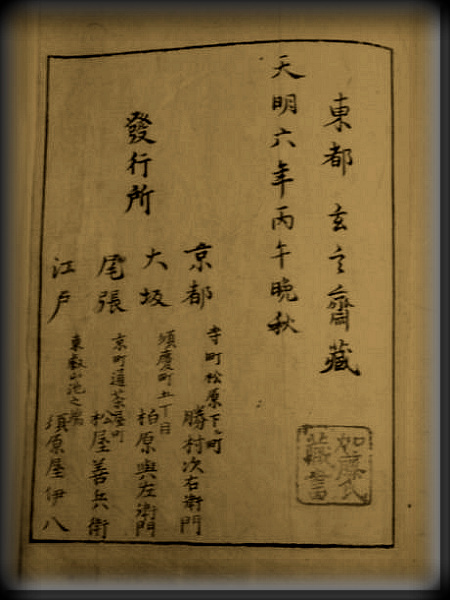 東都 玄之齋藏
天明六年丙午晩秋
發行所
京都 寺町松原下ル町 勝村次右衛門
大坂 須慶町五丁目 柏原與左衛門
尾張 京町通茶屋町 松屋善兵衛
江戸 東叡山池之端 須原屋伊八
加藤氏
藏書